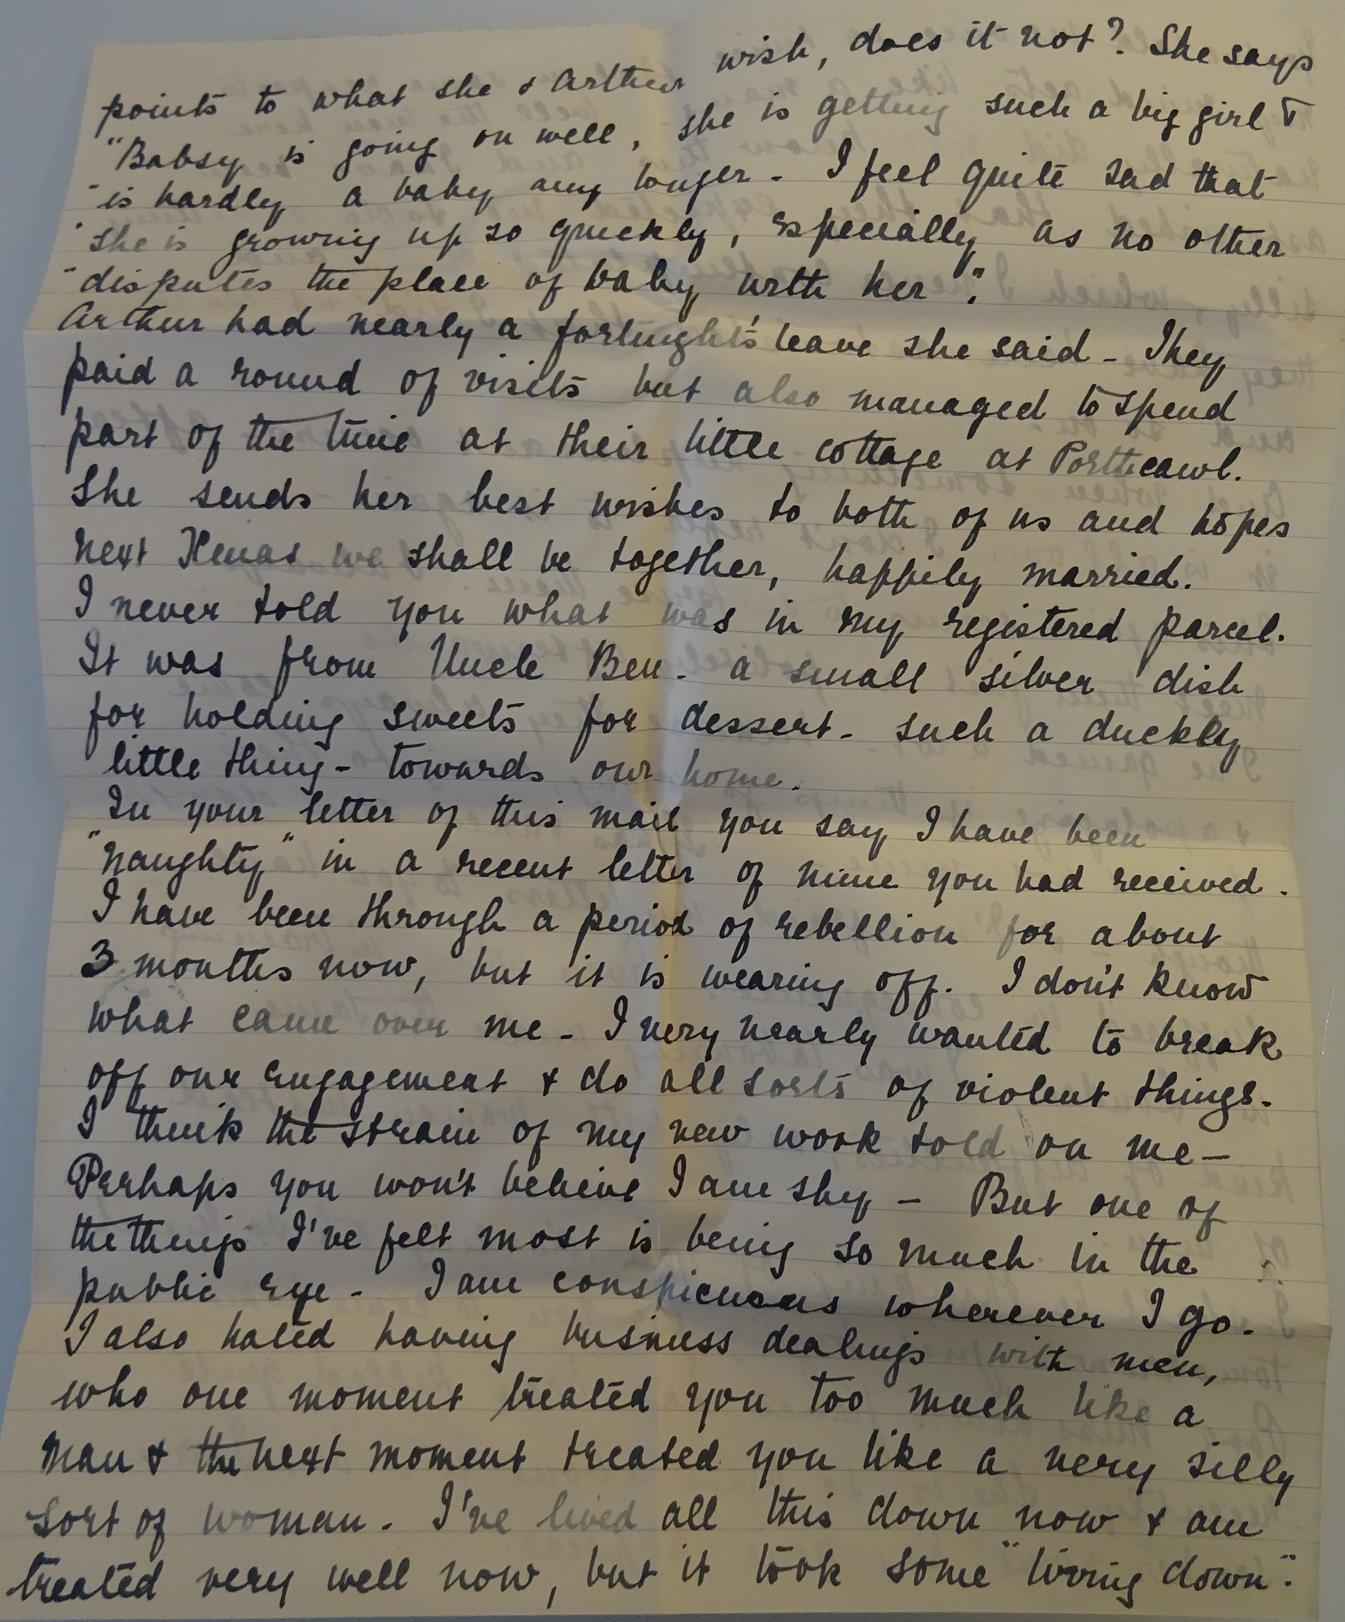 points to what she & Arthur wish, does it not? She says
"Babsy is going on well, she is getting such a big girl &
"is hardly a baby any longer - I feel quite sad that
"she is growing up so quickly, especially as no other
"disputes the place of baby with her".
Arthur had nearly a fortnight's leave she said - They
paid a round of visits but also managed to spend
part of the time at their little cottage at Porthcawl.
She sends her best wishes to both of us and hopes
next Xmas we shall be together, happily married.
I never told you what was in my registered parcel.
It was from Uncle Ben - a small silver dish
for holding sweets for dessert - such a duckly
little thing - towards our home.
In your letter of this mail you say I have been
"naughty" in a recent letter of mine you had received.
I have been through a period of rebellion for about
3 months now, but it is wearing off. I don't know
what came over me - I very nearly wanted to break
off our engagement & do all sorts of violent things.
I think the strain of my new work told on me -
Perhaps you won't believe I am shy - But one of
the things I've felt most is being so much in the
public eye - I am conspicuous wherever I go.
I also hated having business dealings with men,
who one moment treated you too much like a
man & the next moment treated you like a very silly
sort of woman. I've lived all this down now & am
treated very well now, but it took some "living down".